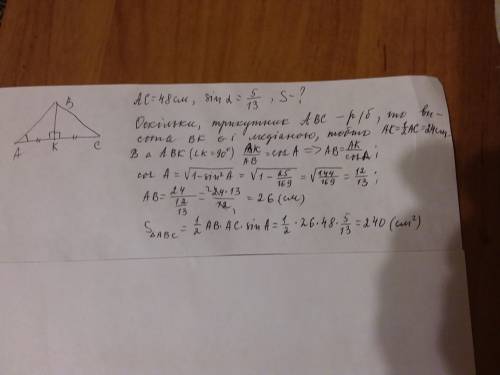 AC=48см, sin α = 5/13, S-?
B
Оскільки, трикутник ABC - р/б, то ви-
сота BK є і медіаною, тобто AK=1/2 AC=24см.
A K C
В Δ ABK (∠K=90°) AK/AB = cos A => AB = AK/cos A;
cos A = √1-sin²A = √1-25/169 = √144/169 = 12/13;
AB = 24/(12/13) = 24·13/12 = 26 (см)
S△ABC = 1/2 AB·AC·sin A = 1/2 · 26 · 48 · 5/13 = 240 (см²)